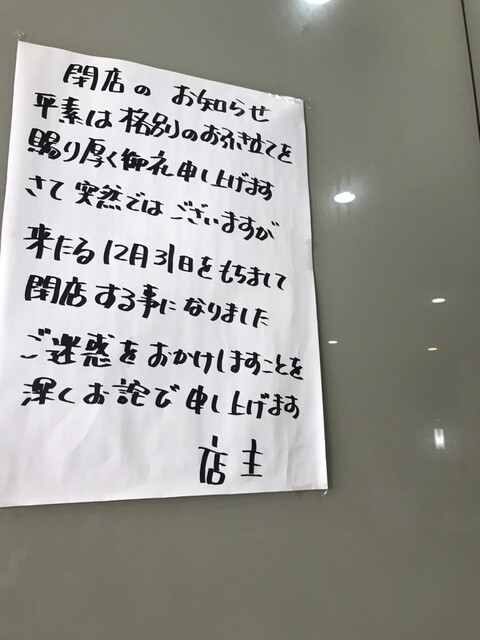 閉店の お知らせ
平素は格別のお引き立てを
賜り厚く御礼申し上げます
さて突然ではございますが
来たる12月31日をもちまして
閉店する事になりました
ご迷惑をおかけしますことを
深くお詫び申し上げます
店主